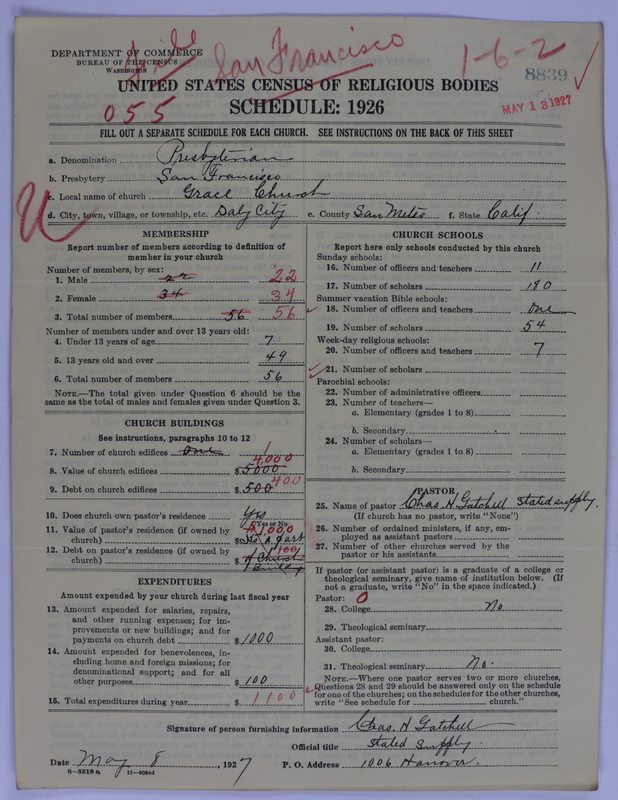 DEPARTMENT OF COMMERCE
BUREAU OF THE CENSUS
WASHINGTON
San Francisco
1-6-2
8839
MAY 13 1927
055
UNITED STATES CENSUS OF RELIGIOUS BODIES
SCHEDULE: 1926
FILL OUT A SEPARATE SCHEDULE FOR EACH CHURCH. SEE INSTRUCTIONS ON THE BACK OF THIS SHEET
a. Denomination Presbyterian
b. Presbytery San Francisco
c. Local name of church Grace Church
d. City, town, village, or township, etc. Daly City e. County San Meteo f. State Calif.
U
MEMBERSHIP
Report number of members according to definition of
member in your church
Number of members, by sex:
1. Male 22 22
2. Female 34 34
3. Total number of members 56 56
Number of members under and over 13 years old:
4. Under 13 years of age 7
5. 13 years old and over 49
6. Total number of members 56
NOTE.—The total given under Question 6 should be
same as the total of males and females given under Question 3.
CHURCH BUILDINGS
See instructions, paragraphs 10 to 12
7. Number of church edifices one 1
8. Value of church edifices $5000 4,000
9. Debt on church edifices $500 400
10. Does church own pastor's residence Yes
(Yes or No)
11. Value of pastor's residence (if owned by
church) $ Its a part 1,000
12. Debt on pastor's residence (if owned by
church) $ of Church Building 100
EXPENDITURES
Amount expended by your church during last fiscal year
13. Amount expended for salaries, repairs,
and other running expenses; for im-
provements or new buildings; and for
payments on church debt $1000
14. Amount expended for benevolences, in-
cluding home and foreign missions; for
denominational support; and for all
other purposes $100
15. Total expenditures during year $1100
CHURCH SCHOOLS
Report here only schools conducted by this church
Sunday schools:
16. Number of officers and teachers 11
17. Number of scholars 180
Summer vacation Bible schools:
18. Number of officers and teachers one
19. Number of scholars 54
Week-day religious schools:
20. Number of officers and teachers 7
21. Number of scholars
Parochial schools:
22. Number of administrative officers
23. Number of teachers—
a. Elementary (grades 1 to 8)
b. Secondary
24. Number of scholars—
a. Elementary (grades 1 to 8)
b. Secondary
PASTOR
25. Name of pastor Chas. H Gatchell stated supply.
(If church has no pastor, write "None")
26. Number of ordained ministers, if any, em-
ployed as assistant pastors
27. Number of other churches served by the
pastor or his assistants
If pastor (or assistant pastor) is a graduate of a college or
theological seminary, give name of institution below. (If
not a graduate, write "No" in the space indicated.)
Pastor: 0
28. College No
29. Theological seminary
Assistant pastor:
30. College
31. Theological seminary No.
NOTE.—Where one pastor serves two or more churches,
Questions 28 and 29 should be answered only on the schedule
for one of the churches; on the schedules for the other churches,
write "See schedule for church."
Signature of person furnishing information Chas. H Gatchell
Official title stated supply.
Date May 8, 1927 P. O. Address 1006 Hanover.
8—5518a 11—9064d